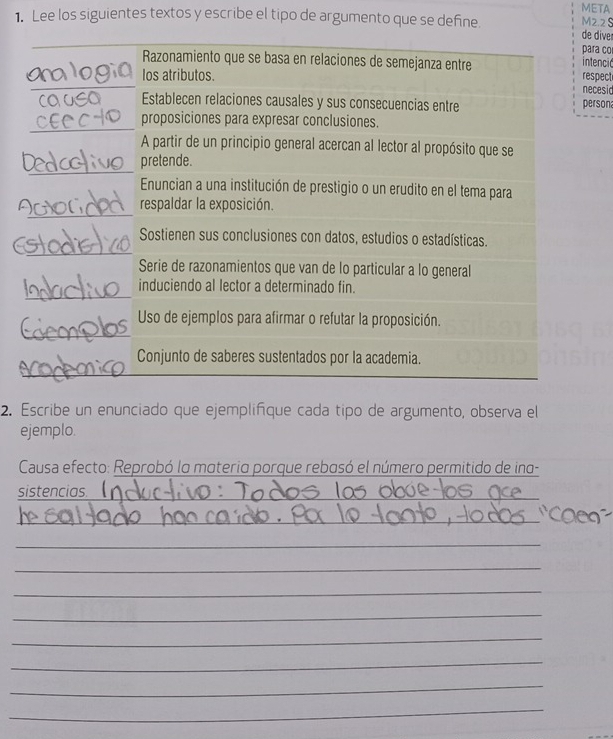 1. Lee los siguientes textos y escribe el tipo de argumento que se define.
META
M2.2 S
de diver
para co
intenció
respect
necesid
persona
analogia
Razonamiento que se basa en relaciones de semejanza entre
los atributos.
causa
efecto
Establecen relaciones causales y sus consecuencias entre
proposiciones para expresar conclusiones.
Deductivo
A partir de un principio general acercan al lector al propósito que se
pretende.
Autoridad
Enuncian a una institución de prestigio o un erudito en el tema para
respaldar la exposición.
Estadistico
Sostienen sus conclusiones con datos, estudios o estadísticas.
Inductivo
Serie de razonamientos que van de lo particular a lo general
induciendo al lector a determinado fin.
Ejemplos
Uso de ejemplos para afirmar o refutar la proposición.
Academico
Conjunto de saberes sustentados por la academia.
2. Escribe un enunciado que ejemplifique cada tipo de argumento, observa el
ejemplo.
Causa efecto: Reprobó la materia porque rebasó el número permitido de ina-
sistencias. Inductivo: Todos los objetos que
he soltado han caido. Por lo tanto, todos "caen"